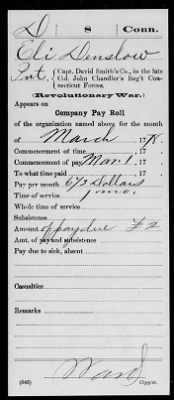 D | 8 | Conn.
Eli Denslow
Pvt., Capt. David Smith's Co., in the late
Col. John Chandler's Reg't Connecticut Forces.
(Revolutionary War.)
Appears on
Company Pay Roll
of the organization named above for the month
of March, 1778.
Commencement of time, 17 .
Commencement of pay Mar. 1, 17 .
To what time paid, 17 .
Pay per month 6 2/3 Dollars
Time of service 1 mo.
Whole time of service
Subsistence
Amount of pay due £2
Amt. of pay and subsistence
Pay due to sick, absent
Casualties
Remarks:
Ward
(545) Copyist.